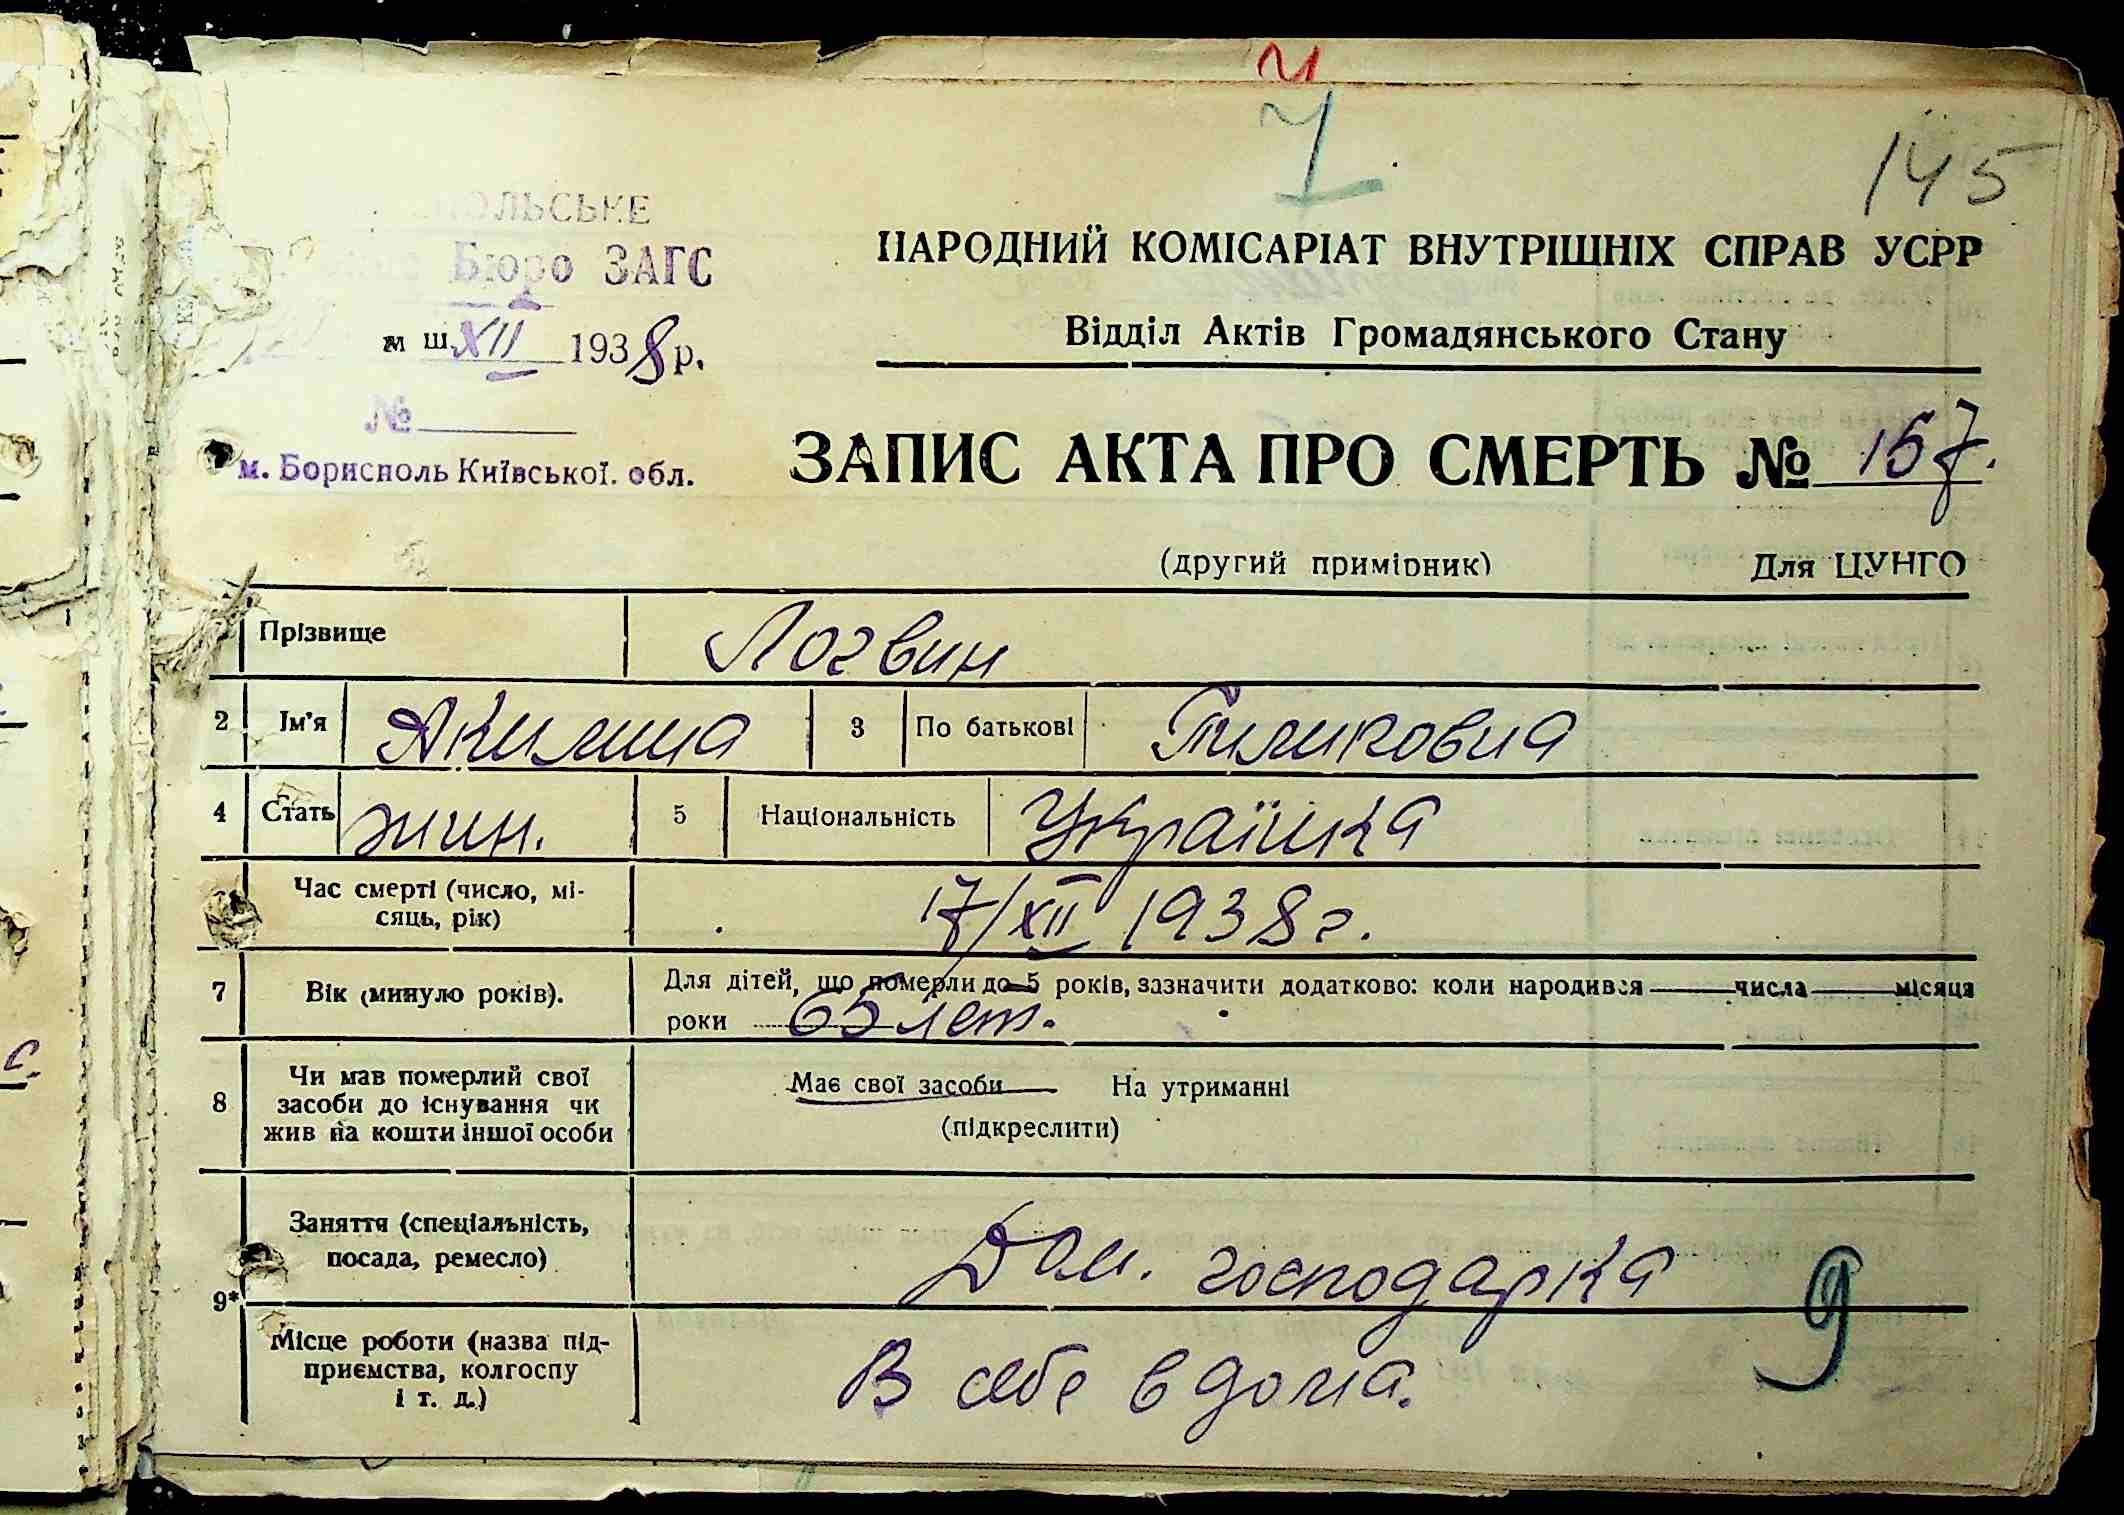 Ч
Ч
145
ПОЛЬСЬКЕ
Бюро ЗАГС
м ш. XII 1938 р.
№
м. Бориспіль Київської. обл.
НАРОДНИЙ КОМІСАРІАТ ВНУТРІШНІХ СПРАВ УСРР
Відділ Актів Громадянського Стану
ЗАПИС АКТА ПРО СМЕРТЬ № 157.
(другий примірник) Для ЦУНГО
Прізвище Логвин
2 Ім'я Акилина 3 По батькові
4 Стать жин. 5 Національність Українка
Час смерті (число, мі-
сяць, рік) 17/XII 1938 г.
7 Вік (минуло років). Для дітей, що померли до 5 років, зазначити додатково: коли народився числа місяця
роки 65 лет.
8 Чи мав померлий свої
засоби до існування чи
жив на кошти іншої особи
Має свої засоби На утриманні
(підкреслити)
9* Заняття (спеціальність,
посада, ремесло) Дом. господарка
9
Місце роботи (назва під-
приємства, колгоспу
і т. д.) В себе вдома.
с.